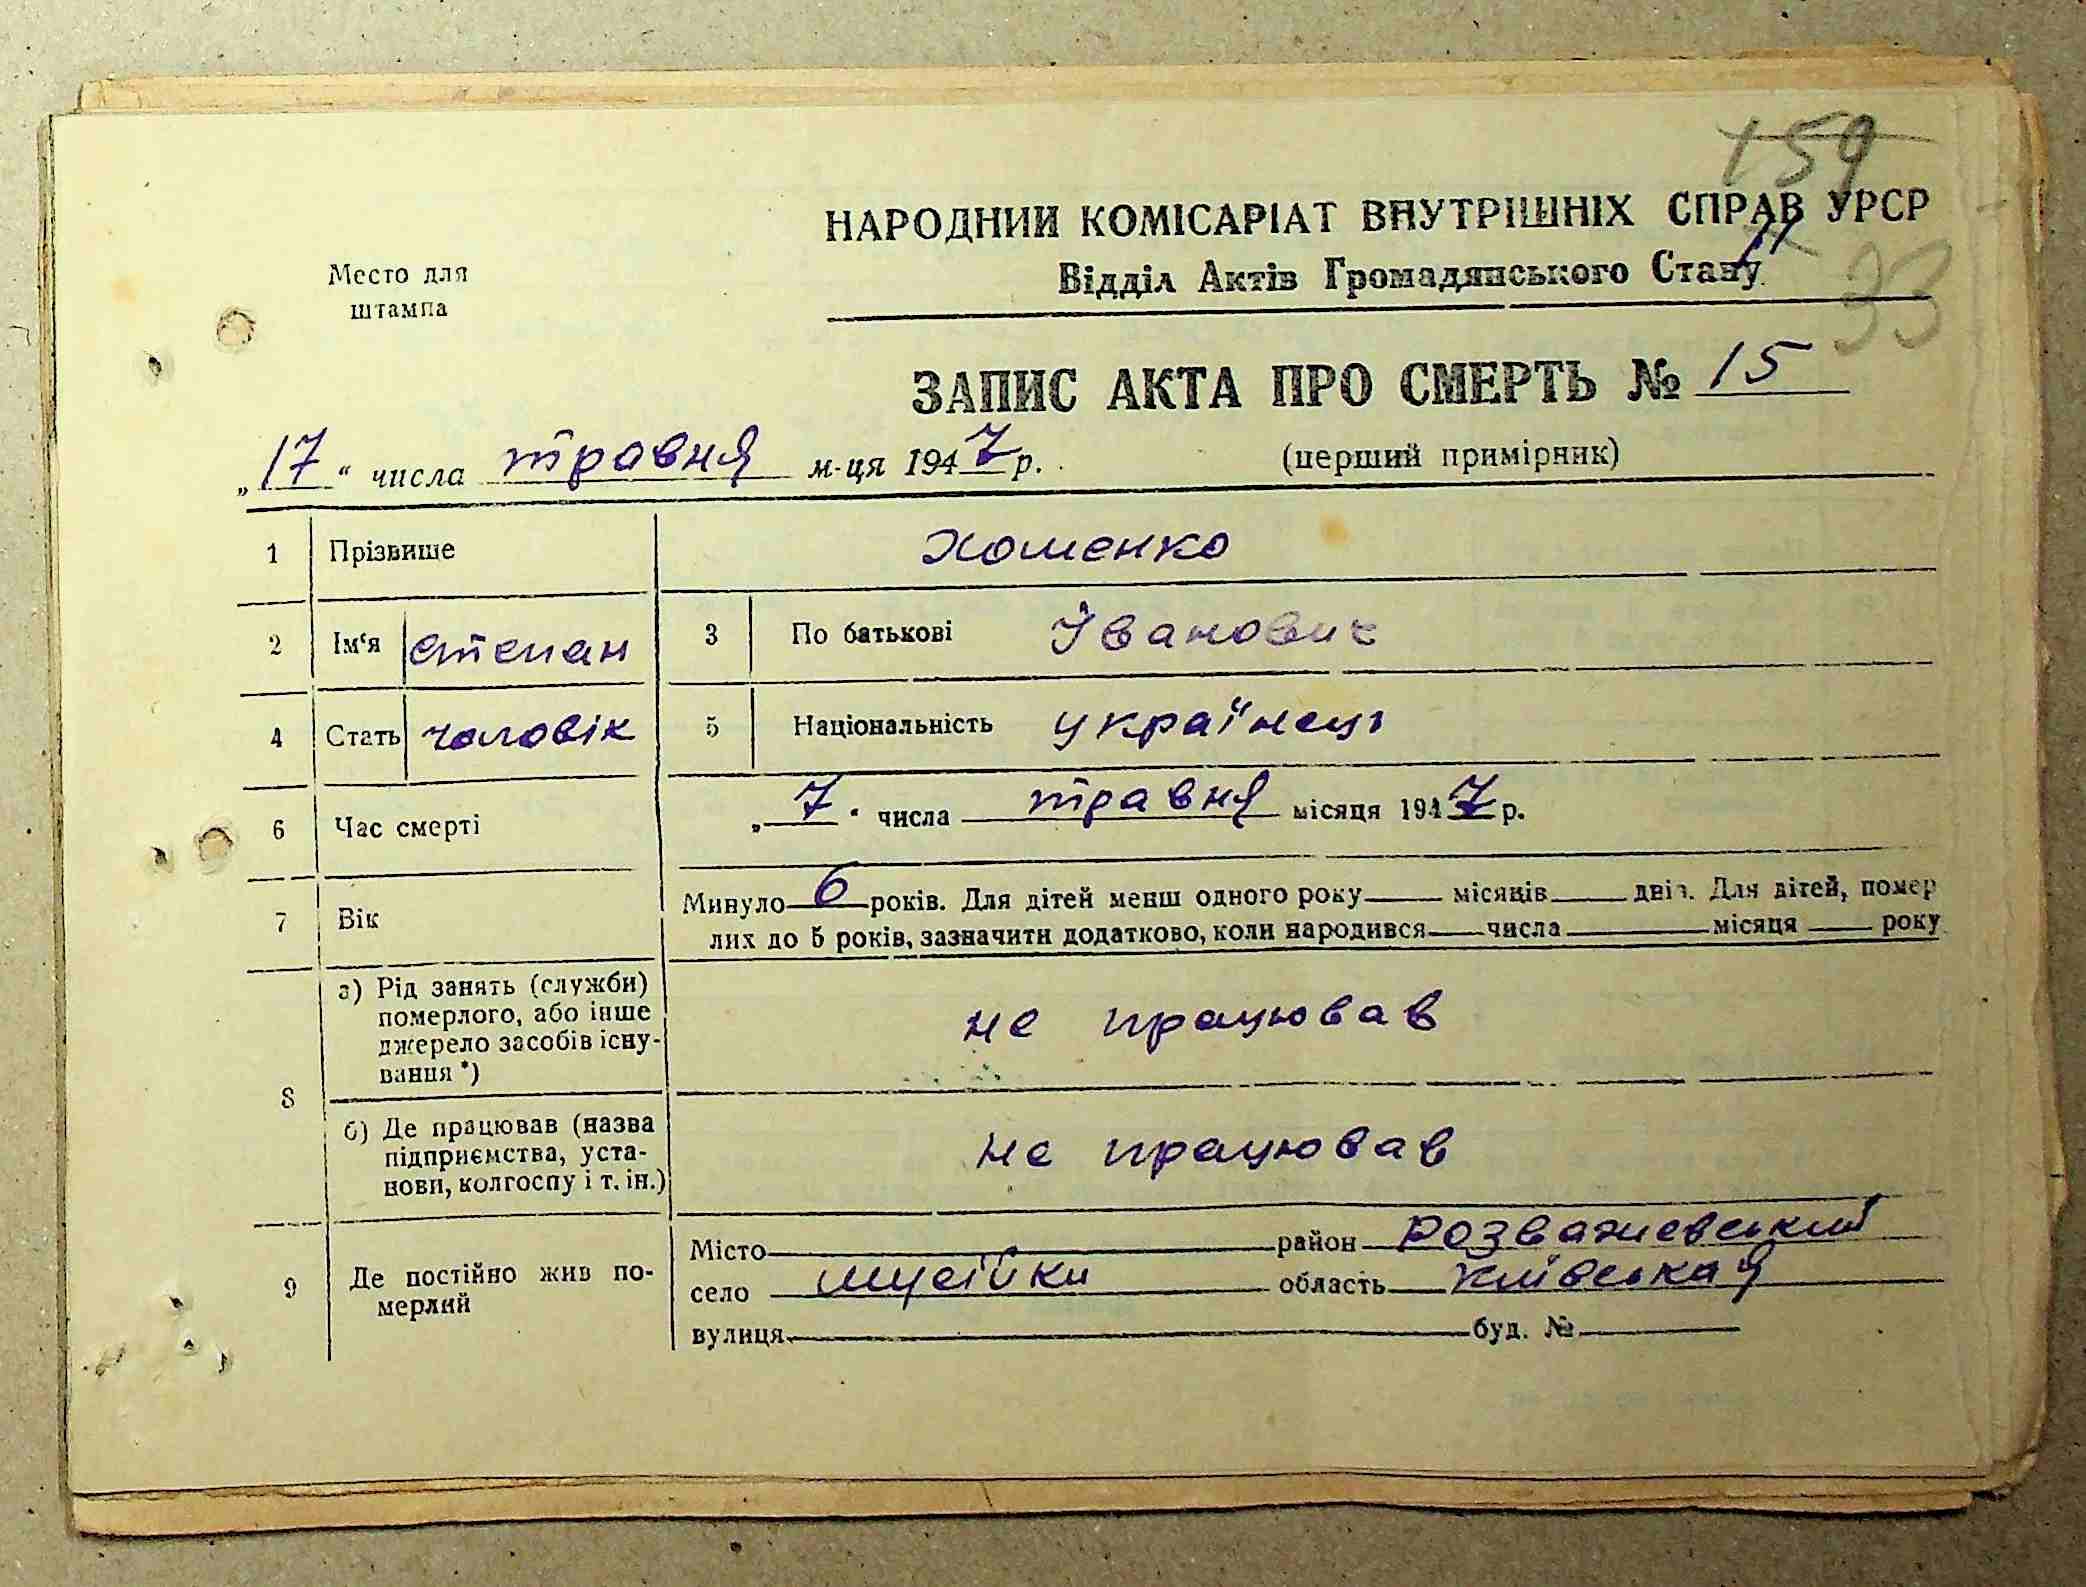 159
НАРОДНИЙ КОМІСАРІАТ ВНУТРІШНІХ СПРАВ УРСР
Відділ Актів Громадянського Стану
33
Место для
штампа
ЗАПИС АКТА ПРО СМЕРТЬ № 15
„17“ числа травня м-ця 1947 р. (перший примірник)
1 Прізвище Хоменко
2 Ім‘я Степан 3 По батькові Іванович
4 Стать чоловік 5 Національність українець
6 Час смерті „7“ числа травня місяця 1947 р.
7 Вік Минуло 6 років. Для дітей менш одного року місяців днів. Для дітей, помер
лих до 5 років, зазначити додатково, коли народився числа місяця року
8 а) Рід занять (служби)
померлого, або інше
джерело засобів існу-
вання *) не працював
б) Де працював (назва
підприємства, уста-
нови, колгоспу і т. ін.) не працював
9 Де постійно жив по-
мерлий
Місто район Розважевський
село Мусійки область Київськая
вулиця буд. №